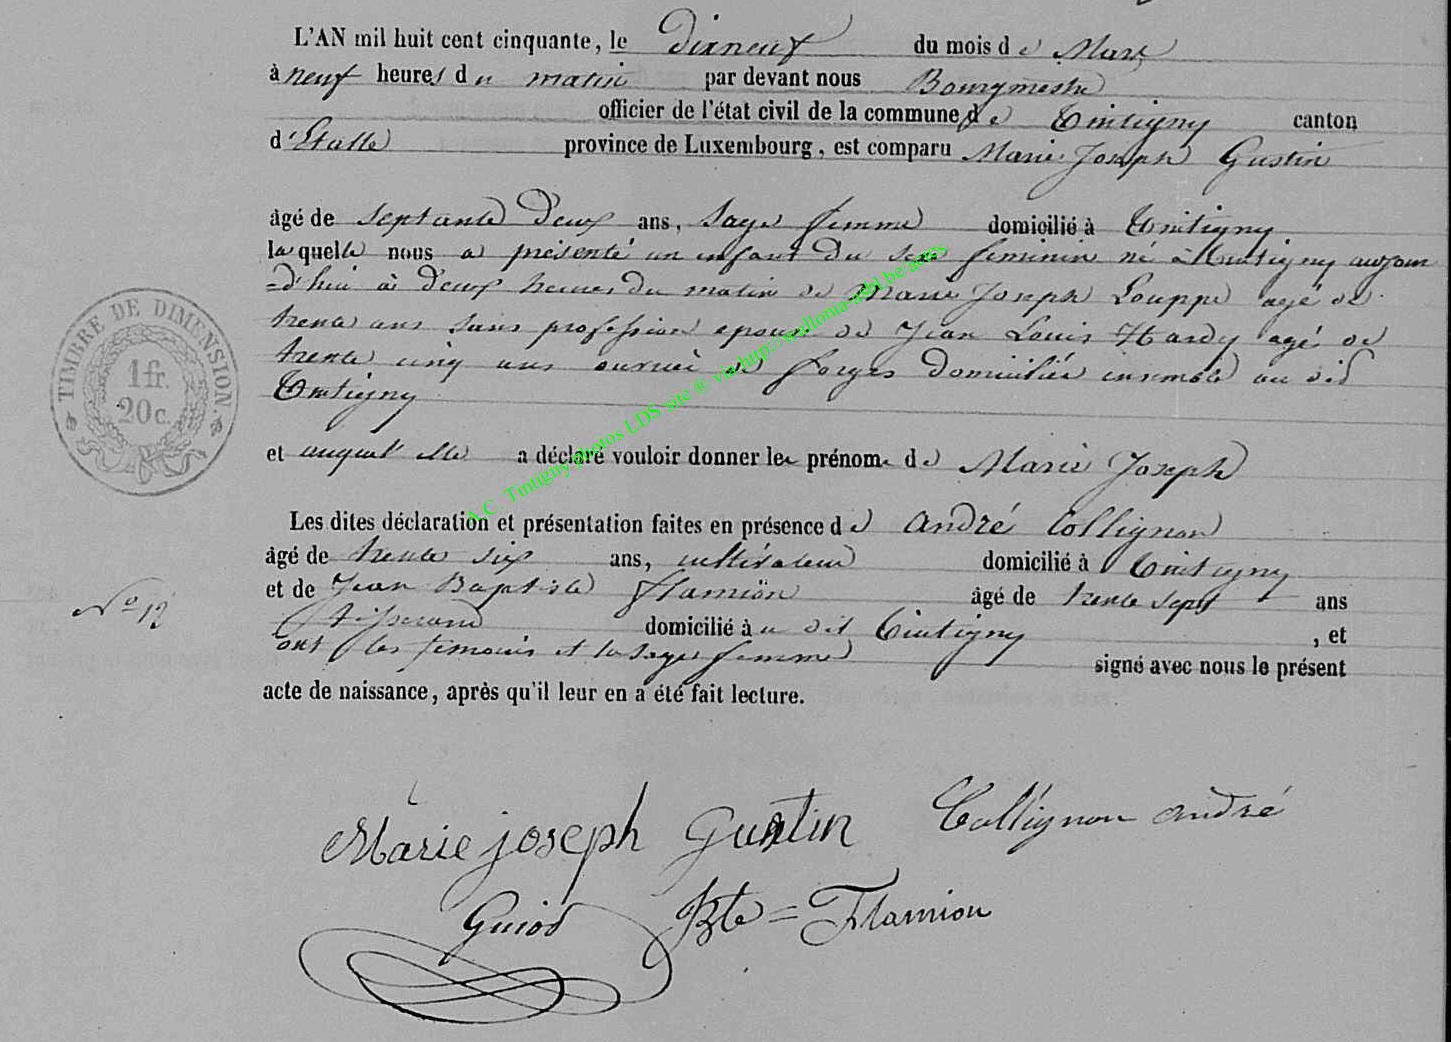 L'AN mil huit cent cinquante, le dixneuf du mois de Mars
à neuf heures du matin par devant nous Bourgmestre
officier de l'état civil de la commune de Tintigny canton
d'Etalle province de Luxembourg, est comparu Marie Joseph Gustin
âgé de septante deux ans, sage femme domicilié à Tintigny
laquelle nous a présenté un enfant du sexe féminin né à Tintigny aujour
=d'hui à deux heures du matin de Marie Joseph Louppe agé de
trente ans sans profession epouse de Jean Louis Hardy agé de
trente cinq ans ouvrier de forges domiciliés ensemble au dit
Tintigny
et auquel elle a déclaré vouloir donner le prénom de Marie Joseph
Les dites déclaration et présentation faites en présence de André Collignon
âgé de trente six ans, cultivateur domicilié à Tintigny
et de Jean Baptiste Flamion âgé de trente sept ans
tisserand domicilié à u dit Tintigny , et
ont les temoins et la sage femme signé avec nous le présent
acte de naissance, après qu'il leur en a été fait lecture.
TIMBRE DE DIMENSION.
1 fr.
20 c.
No 12
A.C. Tintigny photos LDS site ® via http://wallonia-asbl.be/actes
Marie joseph Gustin Collignon andré
Guiot Bte = Flamion